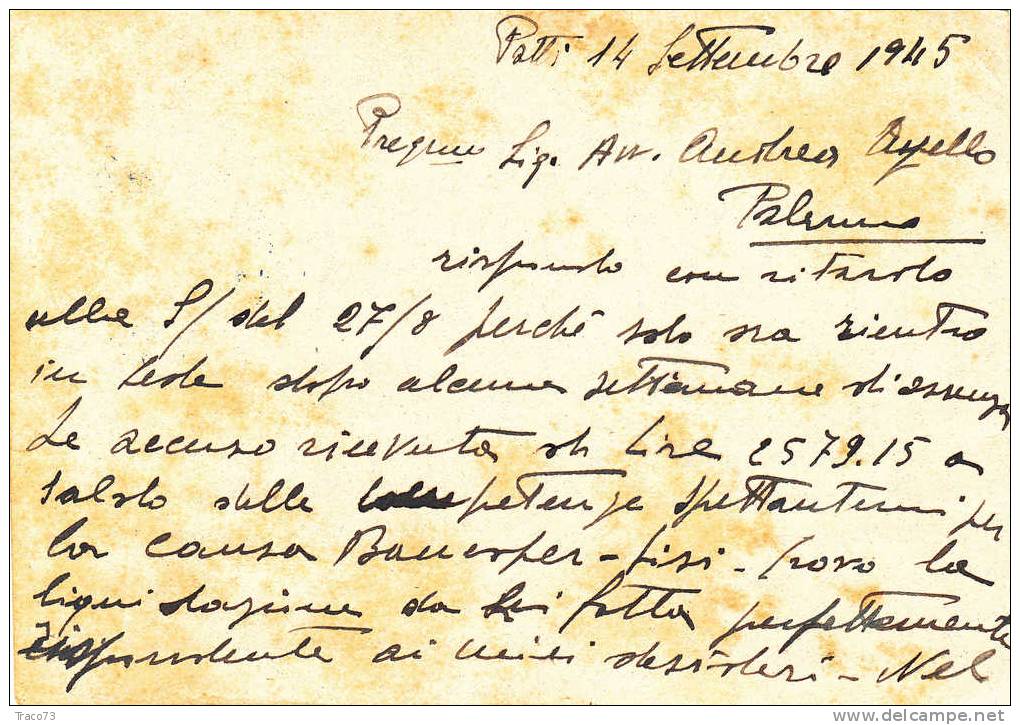 Patti 14 Settembre 1945
Pregmo Sig. Avv. Andrea Ayello
Palermo
rispondo con ritardo
alla S/ del 27/8 perché solo ora rientro
in sede dopo alcune settimane di assenza
Le accuso ricevuta di Lire 2579.15 a
saldo delle competenze spettantemi per
la causa - Pisi - trovo la
liquidazione da Lei fatta perfettamente
rispondente ai miei desideri - Nel
Traco73
delcampe.net